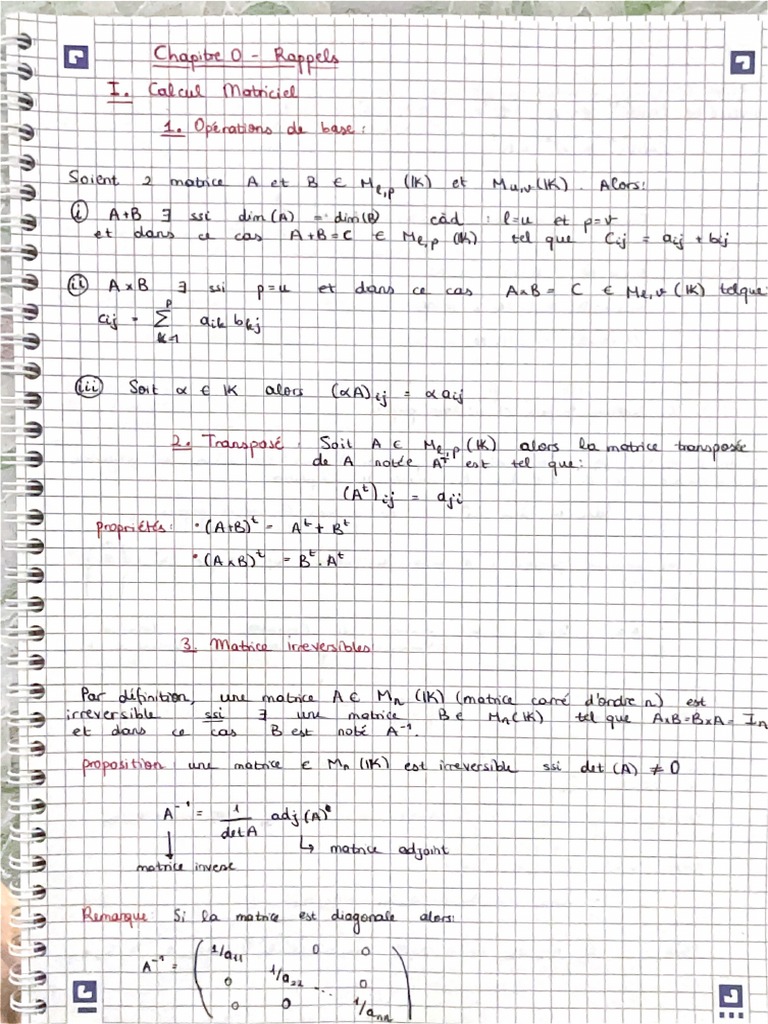 Chapitre 0 - Rappels
I. Calcul Matriciel
1. Opérations de base :
Soient 2 matrice A et B ∈ M_{l,p} (IK) et M_{u,v} (IK). Alors:
(i) A+B ∃ ssi dim(A) = dim(B) càd : l=u et p=v
et dans ce cas A+B=C ∈ M_{l,p} (IK) tel que C_{ij} = a_{ij} + b_{ij}
(ii) A×B ∃ ssi p=u et dans ce cas A×B = C ∈ M_{l,v} (IK) telque:
c_{ij} = \sum_{k=1}^{p} a_{ik} b_{kj}
(iii) Soit α ∈ IK alors (αA)_{ij} = α a_{ij}
2. Transposé : Soit A ∈ M_{l,p} (IK) alors la matrice transposée
de A notée A^T est tel que:
(A^t)_{ij} = a_{ji}
propriétés: • (A+B)^t = A^t + B^t
• (A×B)^t = B^t . A^t
3. Matrice irreversibles
Par définition, une matrice A ∈ M_n (IK) (matrice carré d'ordre n) est
irreversible ssi ∃ une matrice B ∈ M_n (IK) tel que A×B=B×A= I_n
et dans ce cas B est noté A^{-1}.
proposition une matrice ∈ M_n (IK) est irreversible ssi det (A) ≠ 0
A^{-1} = \frac{1}{det A} adj (A)
↳ matrice adjoint
matrice inverse
Remarque: Si la matrice est diagonale alors:
A^{-1} = ( 1/a_{11} 0 0
0 1/a_{22} ... 0
0 0 1/a_{nn} )